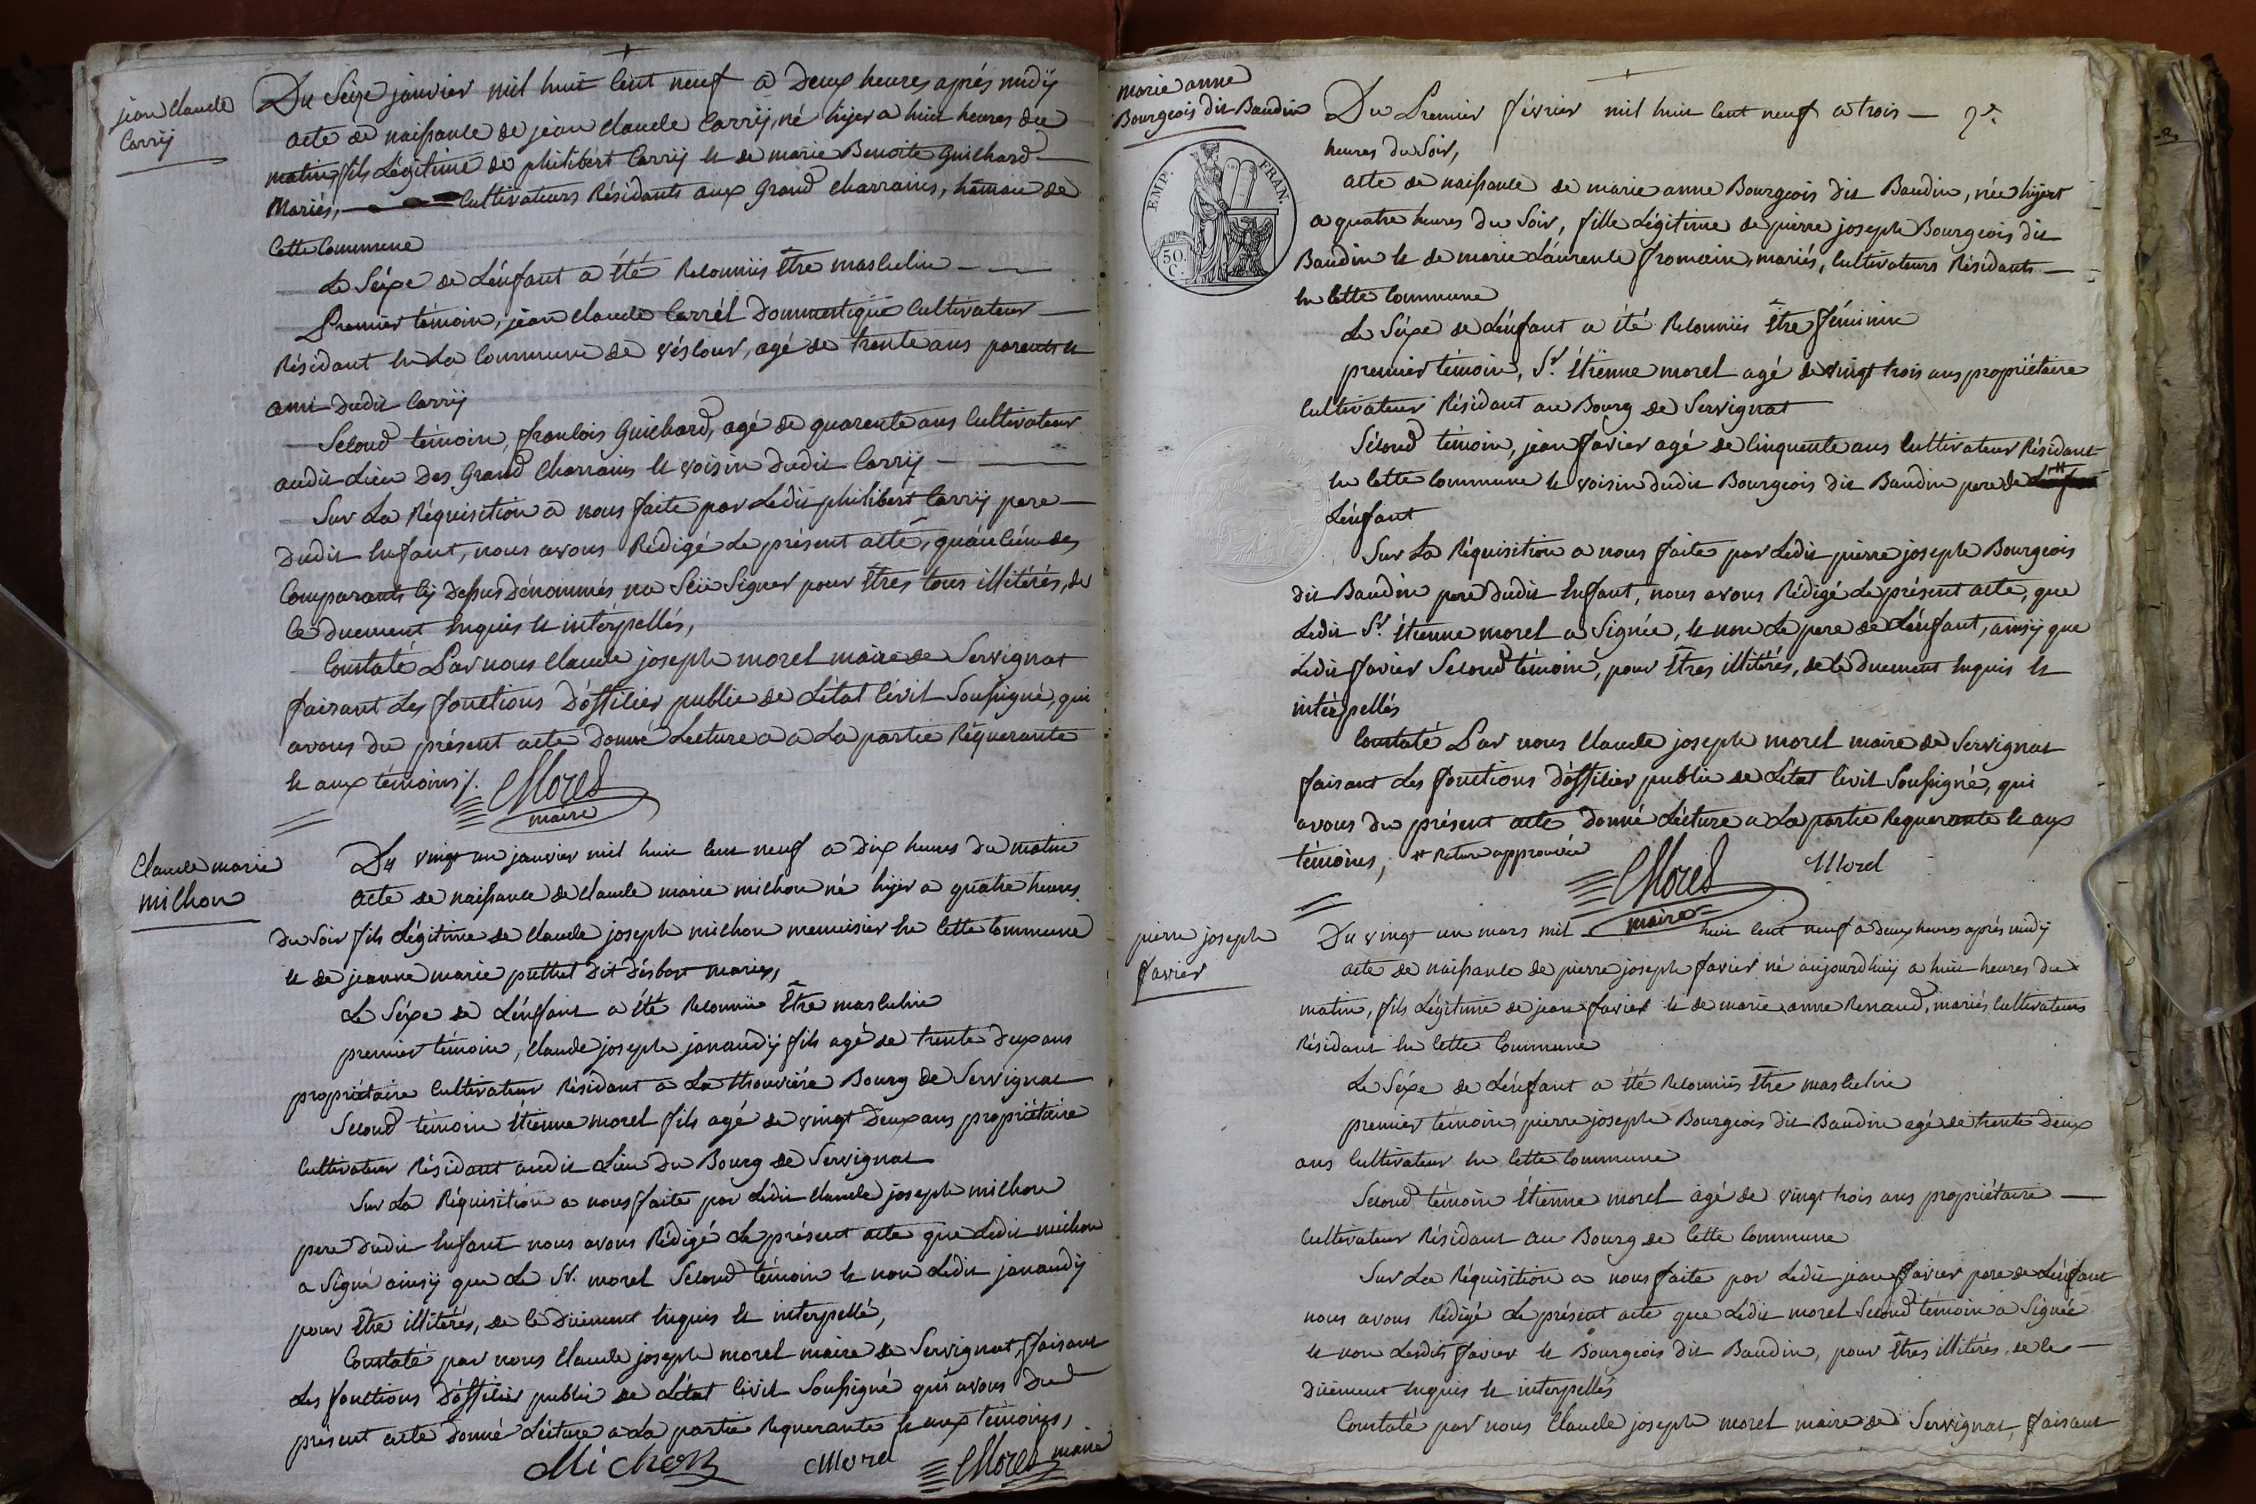 jean claude
Carrij
Du Seize janvier mil huit Cent neuf a Deux heures aprés midÿ
acte de naissance de jean claude Carrij, né hijer a huit heures du
matin, fils Légitime de philibért Carrij et de marie Benoite Guichard
Mariés, Cultivateurs Résidants aux Grand Charrains, hameau de
Cette Commune
Le Séxe de L'énfant a été Reconnüs Être masculin
Premier témoin, jean claude Carrél Dommestique Cultivateur
Résidant en La Commune de véscour, agé de trente ans parents et
ami dudit Carrij
Second témoin, françois Guichard, agé de quarente ans Cultivateur
audit Lieu Des Grand Charrains et voisin dudit Carrij
Sur La Réquisition a nous faite par Ledit philibért Carrij pere
Dudit Enfant, nous avons Rédigé Le présent acte, qu'aucun des
Comparants Cÿ Dessus dénommés na Sçü Signer pour Êtres tous illitérés, de
Ce duement Enquis et intérpellés,
Constaté Par nous Claude joseph morel maire de Servignat
faisant Les fonctions D'officier public de L'état Civil Soussigné, qui
avons du présent acte Donné Lecture a a La partie Réquerante
et aux témoins ./.
Morel
maire
Claude marie
michon
Du vingt un janvier mil huit Cent neuf a Dix heures du matin
acte de naissance de claude marie michon né hijer a quatre heures
du Soir fils Légitime de claude joseph michon menuisier En Cette Commune
et de jeanne marie puthet dit Désbost mariés,
Le Séxe de L'énfant a été Reconnüs Être masculin
premier témoin, claude joseph janaudÿ fils agé de trente Deux ans
propriétaire Cultivateur Résidant a La thouviére Bourg de Servignat
Second témoin Étienne morel fils agé de vingt Deux ans propriétaire
Cultivateur Résidant audit Lieu Du Bourg de Servignat
Sur La Réquisition a nous faite par Ledit claude joseph michon
pere dudit Enfant nous avons Rédigé Le présent acte que Ledit michon
a Signé ainsÿ que Le Sr. morel Second témoin et non Ledit janaudÿ
pour Être illitérés, de Ce Duement Enquis et interpellé,
Constaté par nous Claude joseph morel maire de Servignat, faisant
Les fonctions D'officier public de L'état Civil Soussigné qui avons Du
présent acte donné Lécture a La partie Requerante et aux témoins,
Michon
Morel
Morel maire
marie anne
Bourgeois dit Baudin
EMP. FRAN.
50
C.
Du Premier février mil huit Cent neuf a trois
heures du Soir,
acte de naissance de marie anne Bourgeois dit Baudin, née hijert
a quatre heures du Soir, fille Légitime de pierre joseph Bourgeois dit
Baudin et de marie Láurente fromain, mariés, Cultivateurs Résidants
En Cette Commune
Le Séxe de L'énfant a été Reconnüs Être féminin
premier témoin, Sr. Étienne morel agé de vingt trois ans propriétaire
Cultivateur Résidant au Bourg de Servignat
Sécond témoin, jean favier agé de Cinquente ans Cultivateur Résidant
En Cette Commune et voisin dudit Bourgeois dit Baudin pere de
L'énfant
Sur La Réquisition a nous faite par Ledit pierre joseph Bourgeois
dit Baudin pere dudit Enfant, nous avons Rédigé Le présent acte, que
Ledit Sr. Étienne morel a Signée, et non Le pere de L'énfant, ainsÿ que
Ledit favier Second témoin, pour Êtres illitérés, de Ce duement Enquis et
intérpellés
Constaté Par nous Claude joseph morel maire de Servignat
faisant Les fonctions D'officier public de L'état Civil Soussigné, qui
avons du présent acte donné Lécture a La partie Requerante et aux
témoins, Rature approuvée
Morel
maire
Morel
pierre joseph
favier
Du vingt un mars mil huit Cent neuf a deux heures aprés midÿ
acte de naissance de pierre joseph favier né aujourdhuÿ a huit heures du
matin, fils Légitime de jean favier et de marie anne Renaud, mariés Cultivateurs
Résidant En Cette Commune
Le Séxe de L'énfant a été Reconnüs Être masculin
premier témoin pierre joseph Bourgeois dit Baudin agé de trente Deux
ans Cultivateur En Cette Commune
Second témoin Étienne morel agé de vingt trois ans propriétaire
Cultivateur Résidant au Bourg de Cette Commune
Sur La Réquisition a nous faite par Ledit jean favier pere de L'énfant
nous avons Rédigé Le présent acte que Ledit morel Second témoin a Signée
et non Lesdits favier et Bourgeois dit Baudin, pour Êtres illitérés, de Ce
Duement Enquis et interpellés
Constaté par nous Claude joseph morel maire de Servignat, faisant